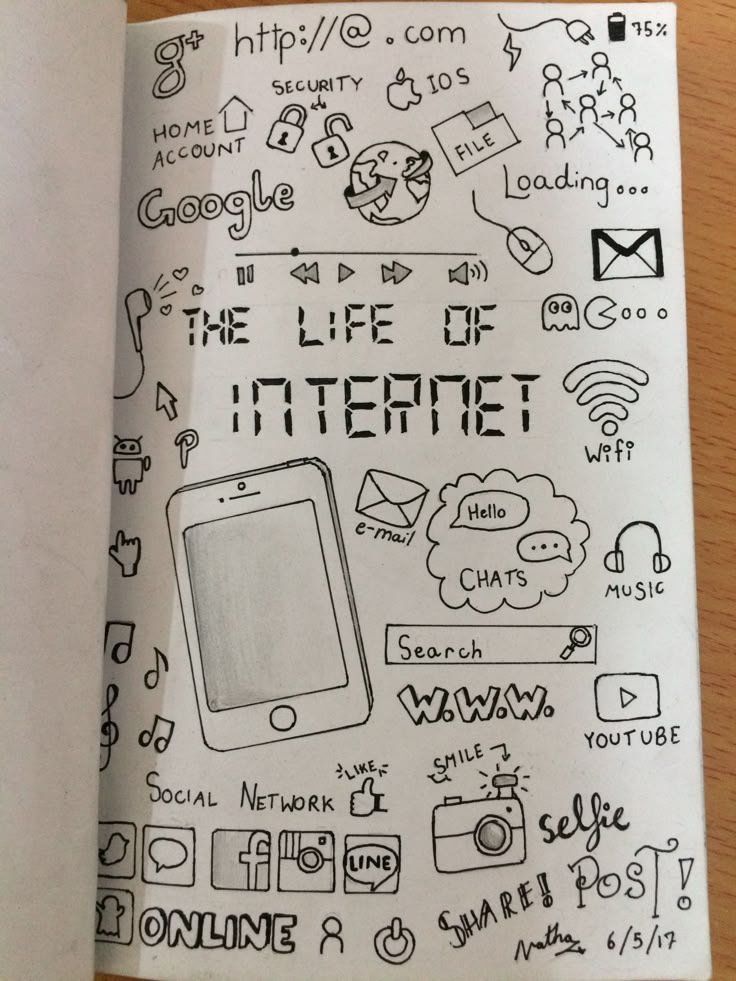 g+
http://@.com
75%
SECURITY
IOS
HOME
ACCOUNT
FILE
Google
Loading...
THE LIFE OF
INTERNET
Wifi
e-mail
Hello
...
CHATS
MUSIC
Search
W.W.W.
YOUTUBE
SMILE
LIKE
SOCIAL NETWORK
selfie
f
LINE
POST!
SHARE!
ONLINE
6/5/17